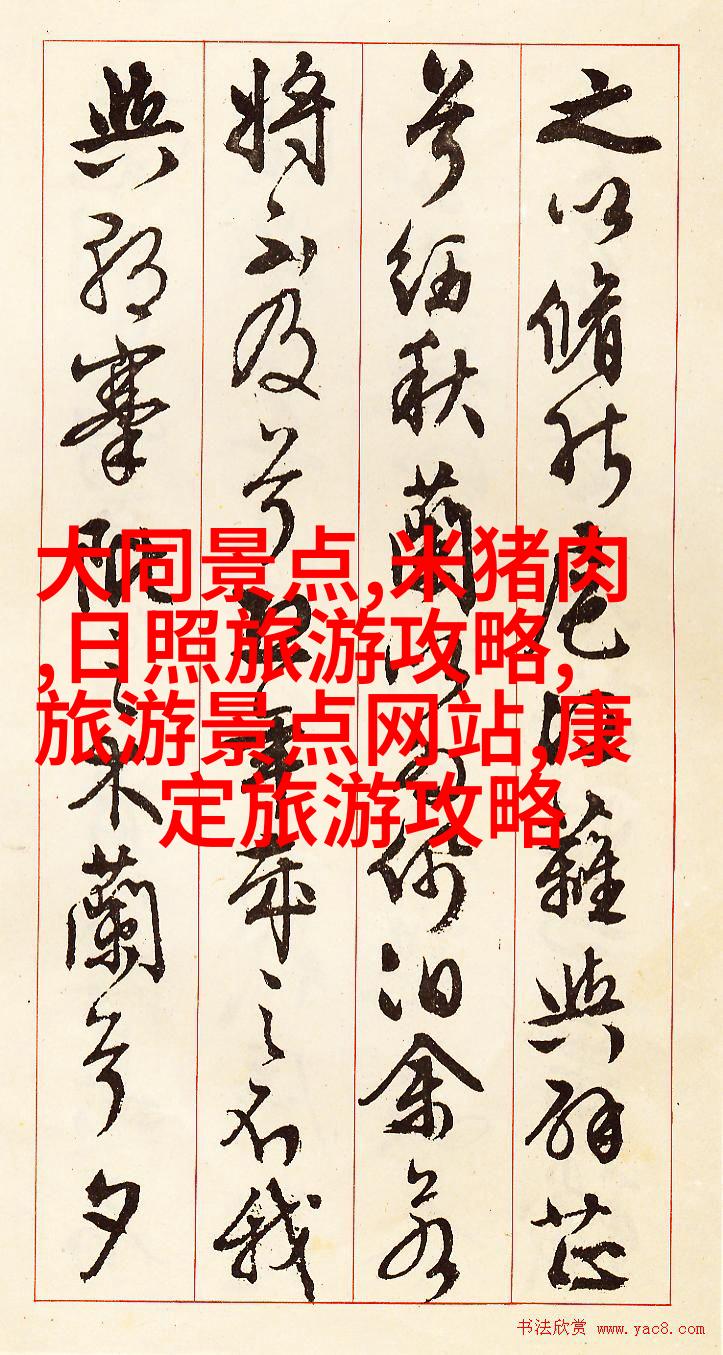 之以脩能扈江離與辟芷
兮紉秋蘭以為佩汩余若
將不及兮恐年歲之不我
與朝搴阰之木蘭兮夕
大同景点,米猪肉
,日照旅游攻略,
旅游景点网站,康
定旅游攻略
书法欣赏 www.yac8.com